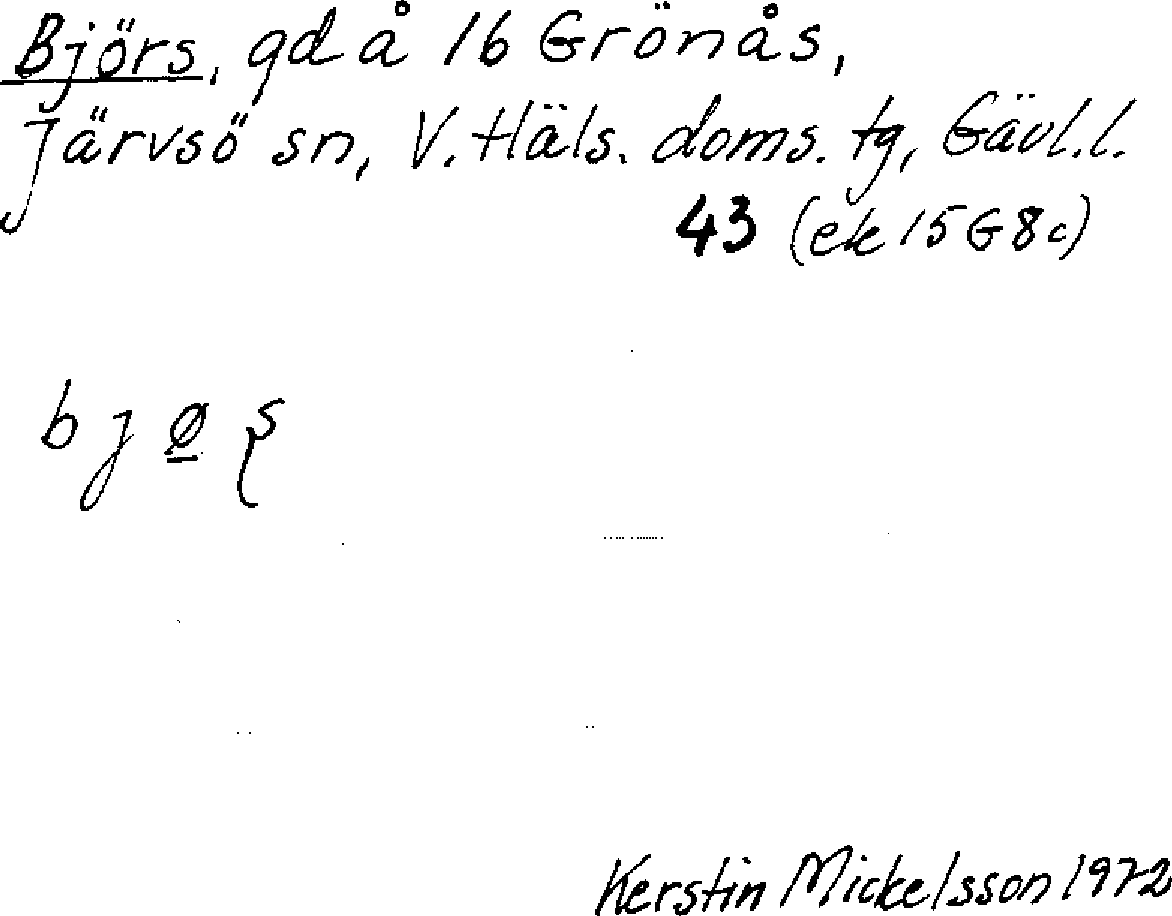 Björs, gd å 16 Grönås,
Järvsö sn, V. Häls. doms. tg, Gävl. l.
43 (ek 15 G 8 c)
b j ø̲ ʂ
Kerstin Mickelsson 1972